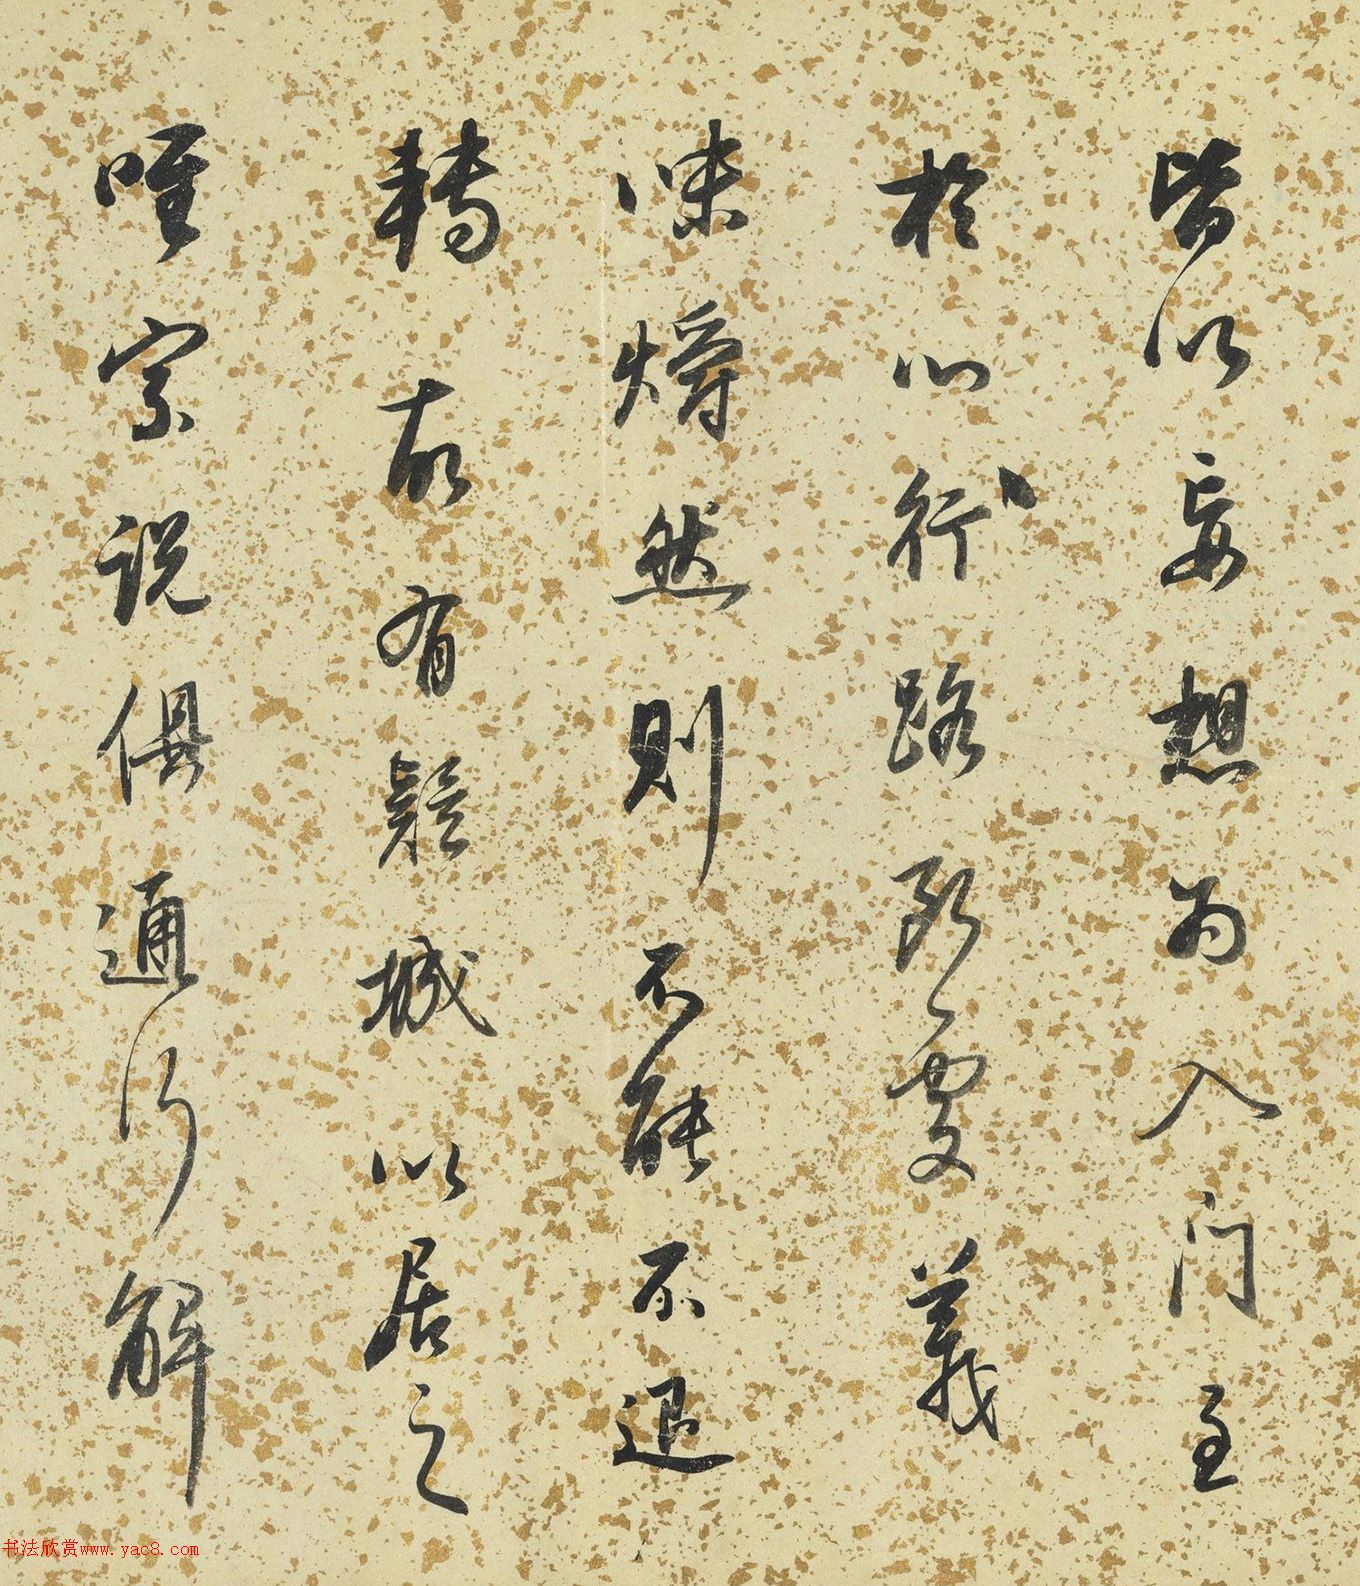 皆以妄想為入門至
於心行路斷處義
味爝然則不能不退
轉故有疑城以居之
唯宗說俱通行解
书法欣赏www.yac8.com